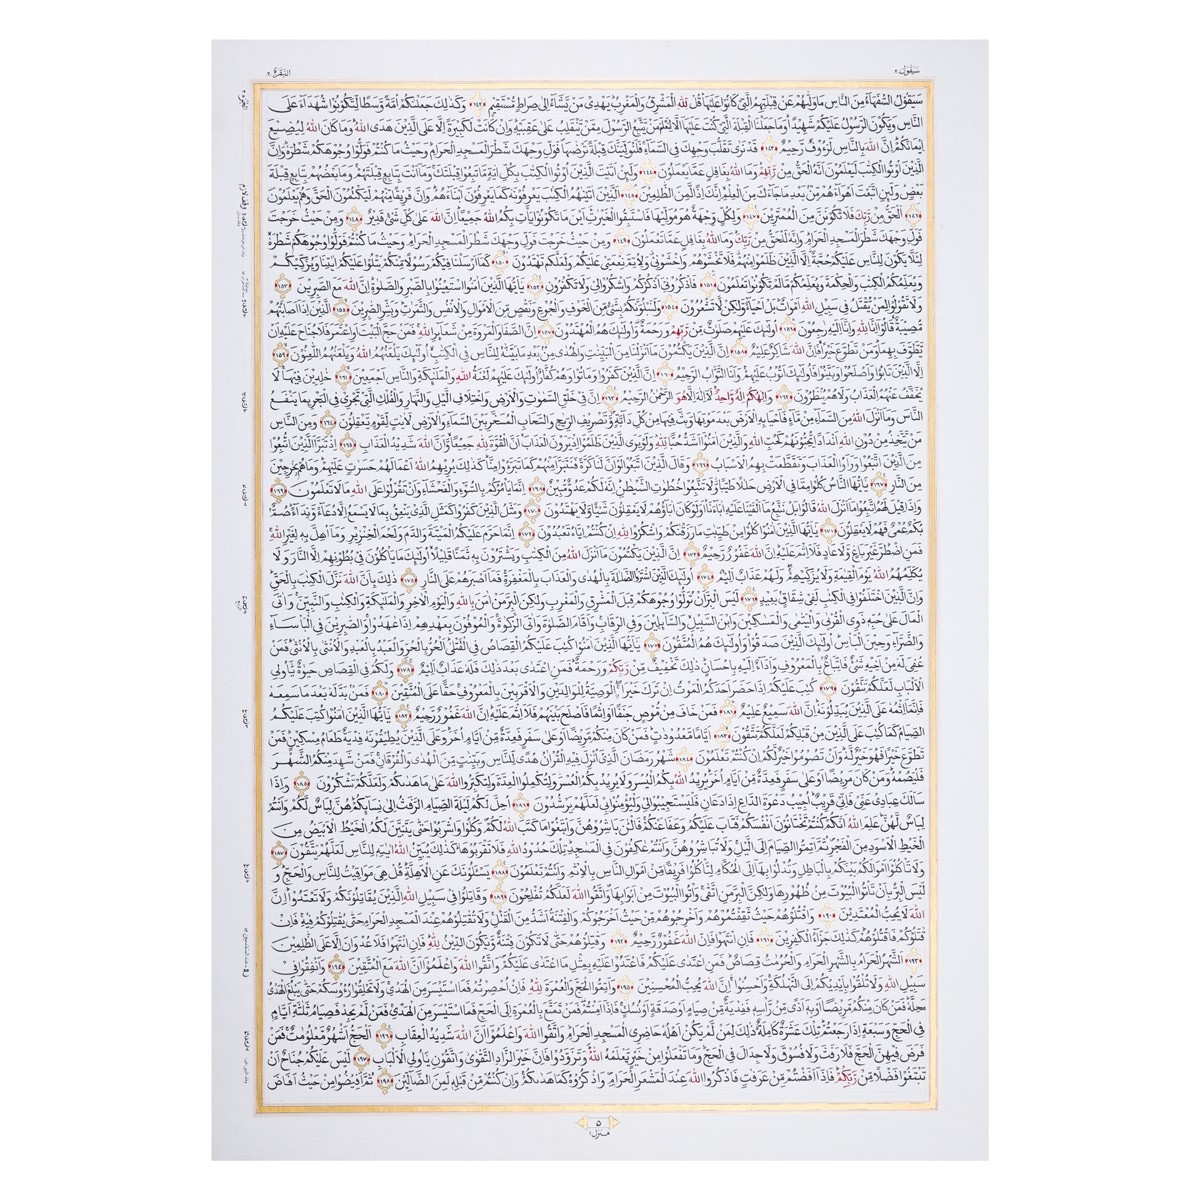 سيقول ٢
البقرة ٢
سيقول السفهاء من الناس ما ولىهم عن قبلتهم التي كانوا عليها قل لله المشرق والمغرب يهدي من يشاء الى صراط مستقيم ١٤٢ وكذلك جعلنكم امة وسطا لتكونوا شهداء على
الناس ويكون الرسول عليكم شهيدا وما جعلنا القبلة التي كنت عليها الا لنعلم من يتبع الرسول ممن ينقلب على عقبيه وان كانت لكبيرة الا على الذين هدى الله وما كان الله ليضيع
ايمانكم ان الله بالناس لرءوف رحيم ١٤٣ قد نرى تقلب وجهك في السماء فلنولينك قبلة ترضىها فول وجهك شطر المسجد الحرام وحيث ما كنتم فولوا وجوهكم شطره وان
الذين اوتوا الكتب ليعلمون انه الحق من ربهم وما الله بغافل عما يعملون ١٤٤ ولين اتيت الذين اوتوا الكتب بكل اية ما تبعوا قبلتك وما انت بتابع قبلتهم وما بعضهم بتابع قبلة
بعض ولين اتبعت اهواءهم من بعد ما جاءك من العلم انك اذا لمن الظلمين ١٤٥ الذين اتينهم الكتب يعرفونه كما يعرفون ابناءهم وان فريقا منهم ليكتمون الحق وهم يعلمون
١٤٦ الحق من ربك فلا تكونن من الممترين ١٤٧ ولكل وجهة هو موليها فاستبقوا الخيرت اين ما تكونوا يات بكم الله جميعا ان الله على كل شيء قدير ١٤٨ ومن حيث خرجت
فول وجهك شطر المسجد الحرام وانه للحق من ربك وما الله بغافل عما تعملون ١٤٩ ومن حيث خرجت فول وجهك شطر المسجد الحرام وحيث ما كنتم فولوا وجوهكم شطره
لئلا يكون للناس عليكم حجة الا الذين ظلموا منهم فلا تخشوهم واخشوني ولاتم نعمتي عليكم ولعلكم تهتدون ١٥٠ كما ارسلنا فيكم رسولا منكم يتلوا عليكم ايتنا ويزكيكم
ويعلمكم الكتب والحكمة ويعلمكم ما لم تكونوا تعلمون ١٥١ فاذكروني اذكركم واشكروا لي ولا تكفرون ١٥٢ يايها الذين امنوا استعينوا بالصبر والصلوة ان الله مع الصبرين ١٥٣
ولا تقولوا لمن يقتل في سبيل الله اموات بل احياء ولكن لا تشعرون ١٥٤ ولنبلونكم بشيء من الخوف والجوع ونقص من الاموال والانفس والثمرت وبشر الصبرين ١٥٥ الذين اذا اصابتهم
مصيبة قالوا انا لله وانا اليه رجعون ١٥٦ اولئك عليهم صلوت من ربهم ورحمة واولئك هم المهتدون ١٥٧ ان الصفا والمروة من شعائر الله فمن حج البيت او اعتمر فلا جناح عليه ان
يطوف بهما ومن تطوع خيرا فان الله شاكر عليم ١٥٨ ان الذين يكتمون ما انزلنا من البينت والهدى من بعد ما بينه للناس في الكتب اولئك يلعنهم الله ويلعنهم اللعنون ١٥٩
الا الذين تابوا واصلحوا وبينوا فاولئك اتوب عليهم وانا التواب الرحيم ١٦٠ ان الذين كفروا وماتوا وهم كفار اولئك عليهم لعنة الله والملئكة والناس اجمعين ١٦١ خلدين فيها لا
يخفف عنهم العذاب ولا هم ينظرون ١٦٢ والهكم اله واحد لا اله الا هو الرحمن الرحيم ١٦٣ ان في خلق السموت والارض واختلاف اليل والنهار والفلك التي تجري في البحر بما ينفع
الناس وما انزل الله من السماء من ماء فاحيا به الارض بعد موتها وبث فيها من كل دابة وتصريف الريح والسحاب المسخر بين السماء والارض لايت لقوم يعقلون ١٦٤ ومن الناس
من يتخذ من دون الله اندادا يحبونهم كحب الله والذين امنوا اشد حبا لله ولو يرى الذين ظلموا اذ يرون العذاب ان القوة لله جميعا وان الله شديد العذاب ١٦٥ اذ تبرا الذين اتبعوا
من الذين اتبعوا وراوا العذاب وتقطعت بهم الاسباب ١٦٦ وقال الذين اتبعوا لو ان لنا كرة فنتبرا منهم كما تبرءوا منا كذلك يريهم الله اعمالهم حسرت عليهم وما هم بخرجين
من النار ١٦٧ يايها الناس كلوا مما في الارض حللا طيبا ولا تتبعوا خطوت الشيطن انه لكم عدو مبين ١٦٨ انما يامركم بالسوء والفحشاء وان تقولوا على الله ما لا تعلمون ١٦٩
واذا قيل لهم اتبعوا ما انزل الله قالوا بل نتبع ما الفينا عليه اباءنا اولو كان اباؤهم لا يعقلون شيئا ولا يهتدون ١٧٠ ومثل الذين كفروا كمثل الذي ينعق بما لا يسمع الا دعاء ونداء صم
بكم عمي فهم لا يعقلون ١٧١ يايها الذين امنوا كلوا من طيبت ما رزقنكم واشكروا لله ان كنتم اياه تعبدون ١٧٢ انما حرم عليكم الميتة والدم ولحم الخنزير وما اهل به لغير الله
فمن اضطر غير باغ ولا عاد فلا اثم عليه ان الله غفور رحيم ١٧٣ ان الذين يكتمون ما انزل الله من الكتب ويشترون به ثمنا قليلا اولئك ما ياكلون في بطونهم الا النار ولا
يكلمهم الله يوم القيمة ولا يزكيهم ولهم عذاب اليم ١٧٤ اولئك الذين اشتروا الضللة بالهدى والعذاب بالمغفرة فما اصبرهم على النار ١٧٥ ذلك بان الله نزل الكتب بالحق
وان الذين اختلفوا في الكتب لفي شقاق بعيد ١٧٦ ليس البر ان تولوا وجوهكم قبل المشرق والمغرب ولكن البر من امن بالله واليوم الاخر والملئكة والكتب والنبين واتى
المال على حبه ذوي القربى واليتمى والمسكين وابن السبيل والسائلين وفي الرقاب واقام الصلوة واتى الزكوة والموفون بعهدهم اذا عهدوا والصبرين في الباساء
والضراء وحين الباس اولئك الذين صدقوا واولئك هم المتقون ١٧٧ يايها الذين امنوا كتب عليكم القصاص في القتلى الحر بالحر والعبد بالعبد والانثى بالانثى فمن
عفي له من اخيه شيء فاتباع بالمعروف واداء اليه باحسان ذلك تخفيف من ربكم ورحمة فمن اعتدى بعد ذلك فله عذاب اليم ١٧٨ ولكم في القصاص حيوة ياولي
الالباب لعلكم تتقون ١٧٩ كتب عليكم اذا حضر احدكم الموت ان ترك خيرا الوصية للوالدين والاقربين بالمعروف حقا على المتقين ١٨٠ فمن بدله بعد ما سمعه
فانما اثمه على الذين يبدلونه ان الله سميع عليم ١٨١ فمن خاف من موص جنفا او اثما فاصلح بينهم فلا اثم عليه ان الله غفور رحيم ١٨٢ يايها الذين امنوا كتب عليكم
الصيام كما كتب على الذين من قبلكم لعلكم تتقون ١٨٣ اياما معدودت فمن كان منكم مريضا او على سفر فعدة من ايام اخر وعلى الذين يطيقونه فدية طعام مسكين فمن
تطوع خيرا فهو خير له وان تصوموا خير لكم ان كنتم تعلمون ١٨٤ شهر رمضان الذي انزل فيه القران هدى للناس وبينت من الهدى والفرقان فمن شهد منكم الشهر
فليصمه ومن كان مريضا او على سفر فعدة من ايام اخر يريد الله بكم اليسر ولا يريد بكم العسر ولتكملوا العدة ولتكبروا الله على ما هدىكم ولعلكم تشكرون ١٨٥ واذا
سالك عبادي عني فاني قريب اجيب دعوة الداع اذا دعان فليستجيبوا لي وليؤمنوا بي لعلهم يرشدون ١٨٦ احل لكم ليلة الصيام الرفث الى نسائكم هن لباس لكم وانتم
لباس لهن علم الله انكم كنتم تختانون انفسكم فتاب عليكم وعفا عنكم فالن باشروهن وابتغوا ما كتب الله لكم وكلوا واشربوا حتى يتبين لكم الخيط الابيض من
الخيط الاسود من الفجر ثم اتموا الصيام الى اليل ولا تباشروهن وانتم عكفون في المسجد تلك حدود الله فلا تقربوها كذلك يبين الله ايته للناس لعلهم يتقون ١٨٧
ولا تاكلوا اموالكم بينكم بالباطل وتدلوا بها الى الحكام لتاكلوا فريقا من اموال الناس بالاثم وانتم تعلمون ١٨٨ يسئلونك عن الاهلة قل هي مواقيت للناس والحج و
ليس البر بان تاتوا البيوت من ظهورها ولكن البر من اتقى واتوا البيوت من ابوابها واتقوا الله لعلكم تفلحون ١٨٩ وقاتلوا في سبيل الله الذين يقاتلونكم ولا تعتدوا ان
الله لا يحب المعتدين ١٩٠ واقتلوهم حيث ثقفتموهم واخرجوهم من حيث اخرجوكم والفتنة اشد من القتل ولا تقتلوهم عند المسجد الحرام حتى يقتلوكم فيه فان
قتلوكم فاقتلوهم كذلك جزاء الكفرين ١٩١ فان انتهوا فان الله غفور رحيم ١٩٢ وقتلوهم حتى لا تكون فتنة ويكون الدين لله فان انتهوا فلا عدوان الا على الظلمين
١٩٣ الشهر الحرام بالشهر الحرام والحرمت قصاص فمن اعتدى عليكم فاعتدوا عليه بمثل ما اعتدى عليكم واتقوا الله واعلموا ان الله مع المتقين ١٩٤ وانفقوا في
سبيل الله ولا تلقوا بايديكم الى التهلكة واحسنوا ان الله يحب المحسنين ١٩٥ واتموا الحج والعمرة لله فان احصرتم فما استيسر من الهدي ولا تحلقوا رءوسكم حتى يبلغ الهدي
محله فمن كان منكم مريضا او به اذى من راسه ففدية من صيام او صدقة او نسك فاذا امنتم فمن تمتع بالعمرة الى الحج فما استيسر من الهدي فمن لم يجد فصيام ثلثة ايام
في الحج وسبعة اذا رجعتم تلك عشرة كاملة ذلك لمن لم يكن اهله حاضري المسجد الحرام واتقوا الله واعلموا ان الله شديد العقاب ١٩٦ الحج اشهر معلومت فمن
فرض فيهن الحج فلا رفث ولا فسوق ولا جدال في الحج وما تفعلوا من خير يعلمه الله وتزودوا فان خير الزاد التقوى واتقون ياولي الالباب ١٩٧ ليس عليكم جناح ان
تبتغوا فضلا من ربكم فاذا افضتم من عرفت فاذكروا الله عند المشعر الحرام واذكروه كما هدىكم وان كنتم من قبله لمن الضالين ١٩٨ ثم افيضوا من حيث افاض
٥
منزل ١